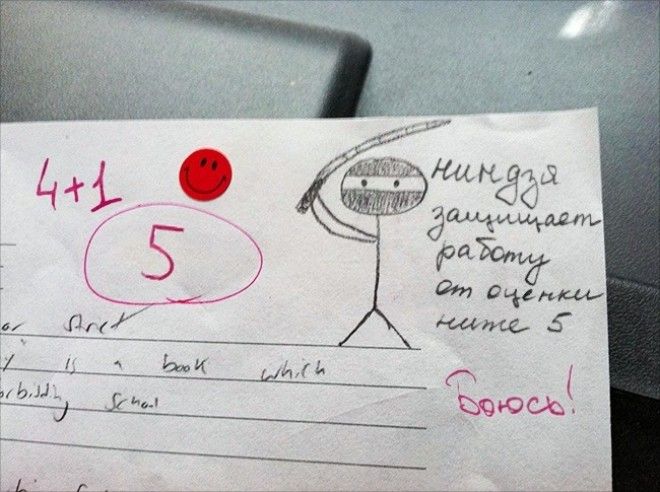 4+1
5
ниндзя
защищает
работу
от оценки
ниже 5
Боюсь!
strict
is a book which
school